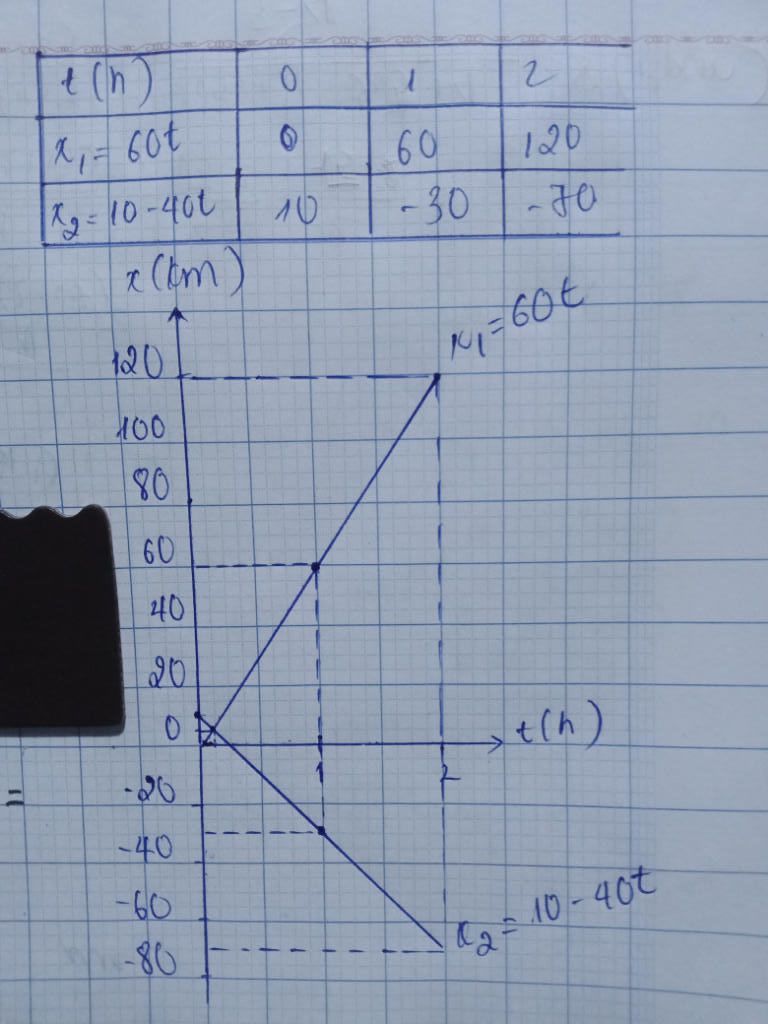 t (h) 0 1 2
x₁ = 60t 0 60 120
x₂ = 10 - 40t 10 -30 -70
x (km)
x₁ = 60t
120
100
80
60
40
20
0
t (h)
1 2
-20
=
-40
-60
x₂ = 10 - 40t
-80